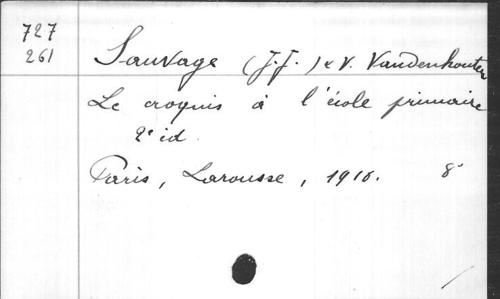 727
261
Sauvage (J.-J.) & V. Vandenhouten
Le croquis à l'école primaire
2e éd.
Paris, Larousse, 1910. 8°